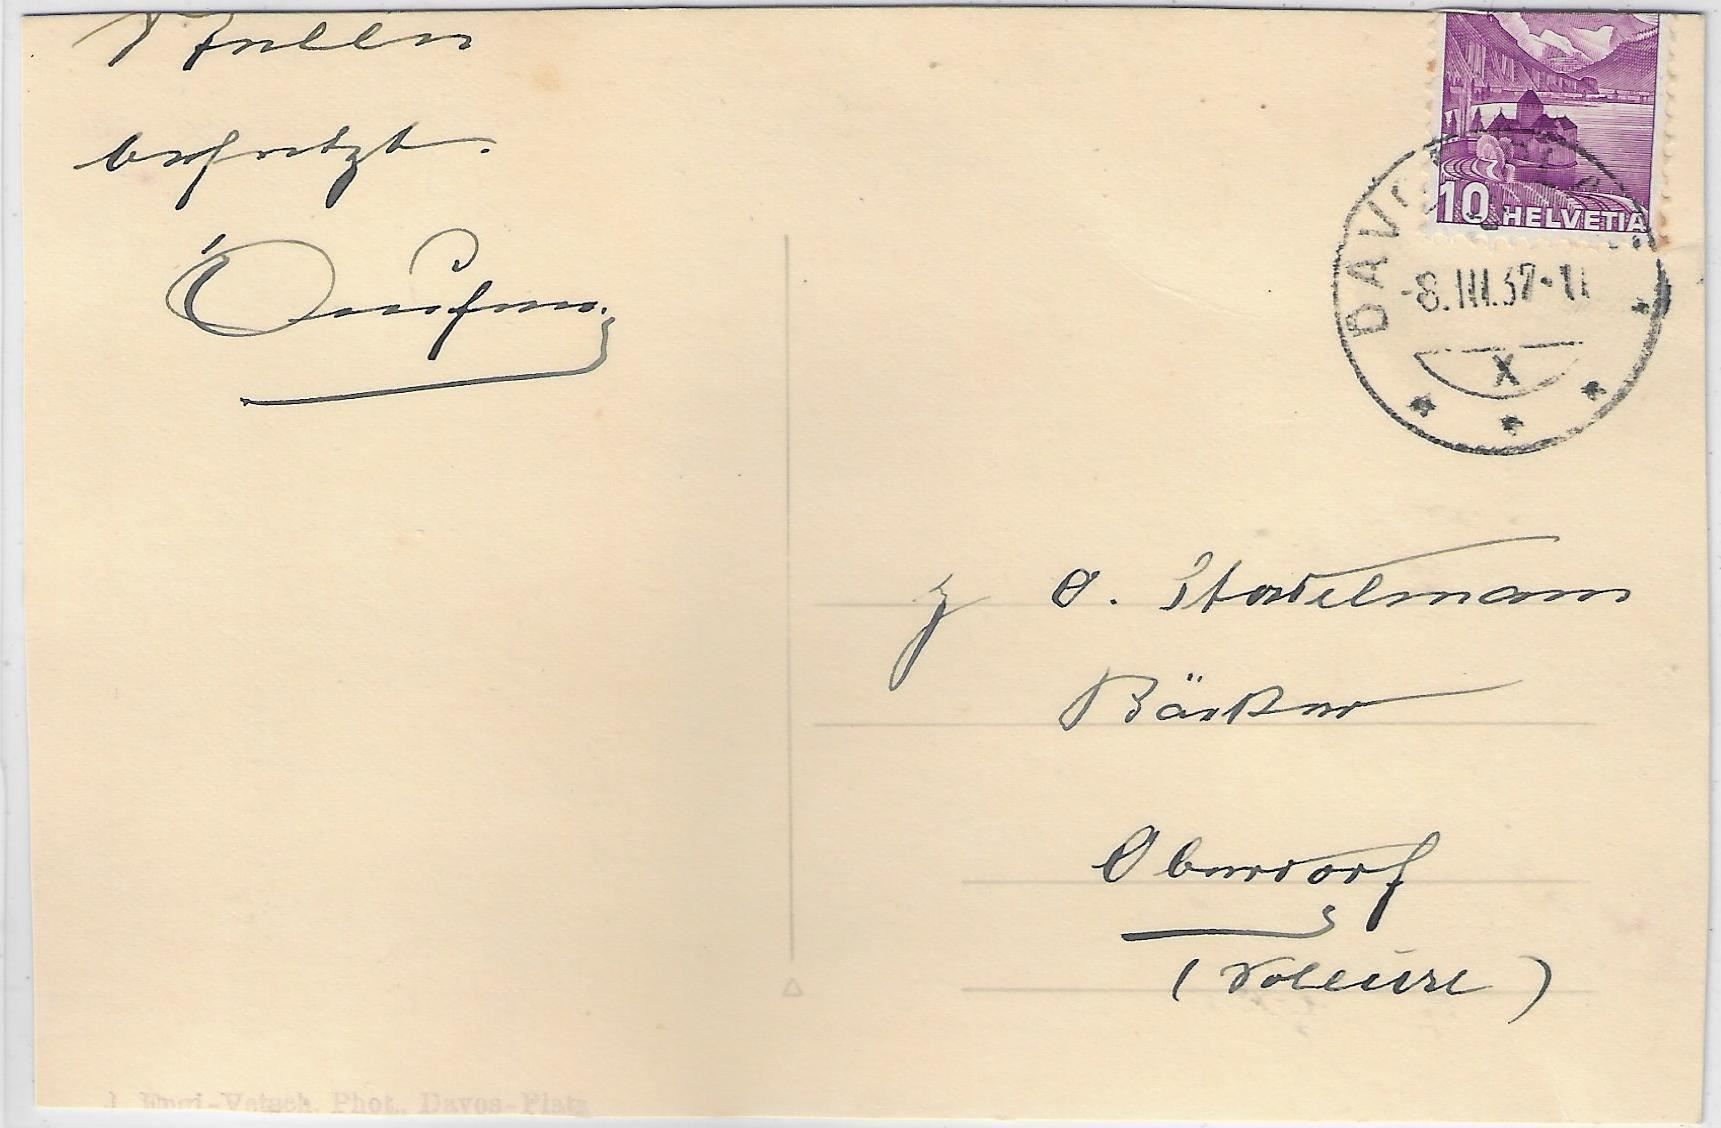 Stellen
besetzt.
10 HELVETIA
DAVOS
-8.III.37-11
X
O. Stadelmann
Bäcker
Oberdorf
(Soleure)
J. Engi-Vetsch, Phot., Davos-Platz